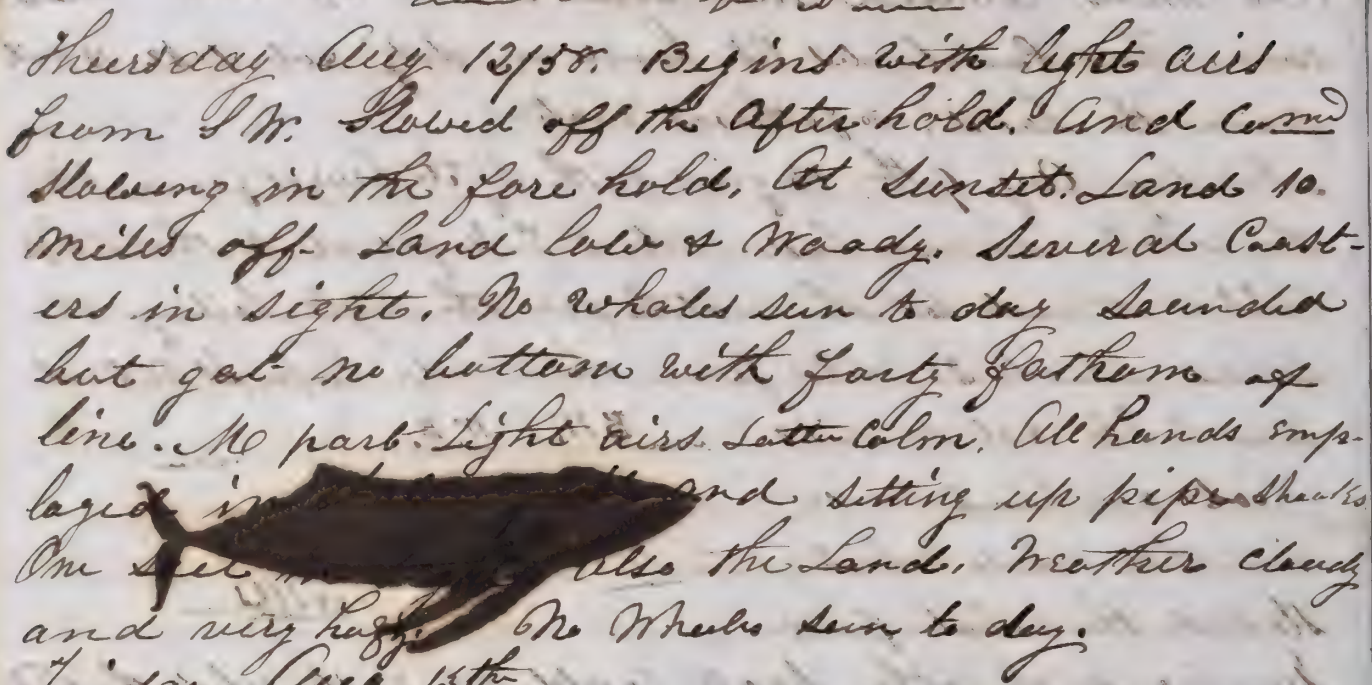 Thursday Aug 12/58. Begins with light airs
from S W. Stowed off the after hold. And Comd
stowing in the fore hold. At sunset. Land 10
miles off Land low & Woody. Several Coast-
ers in sight. No whales seen to day sounded
but got no bottom with forty fathom of
line. M part. Light airs Latter Calm. All hands emp-
loyed in and setting up pipe shooks
One sail also the Land. Weather cloudy
and very hazy. No Whales seen to day.
Aug 13th